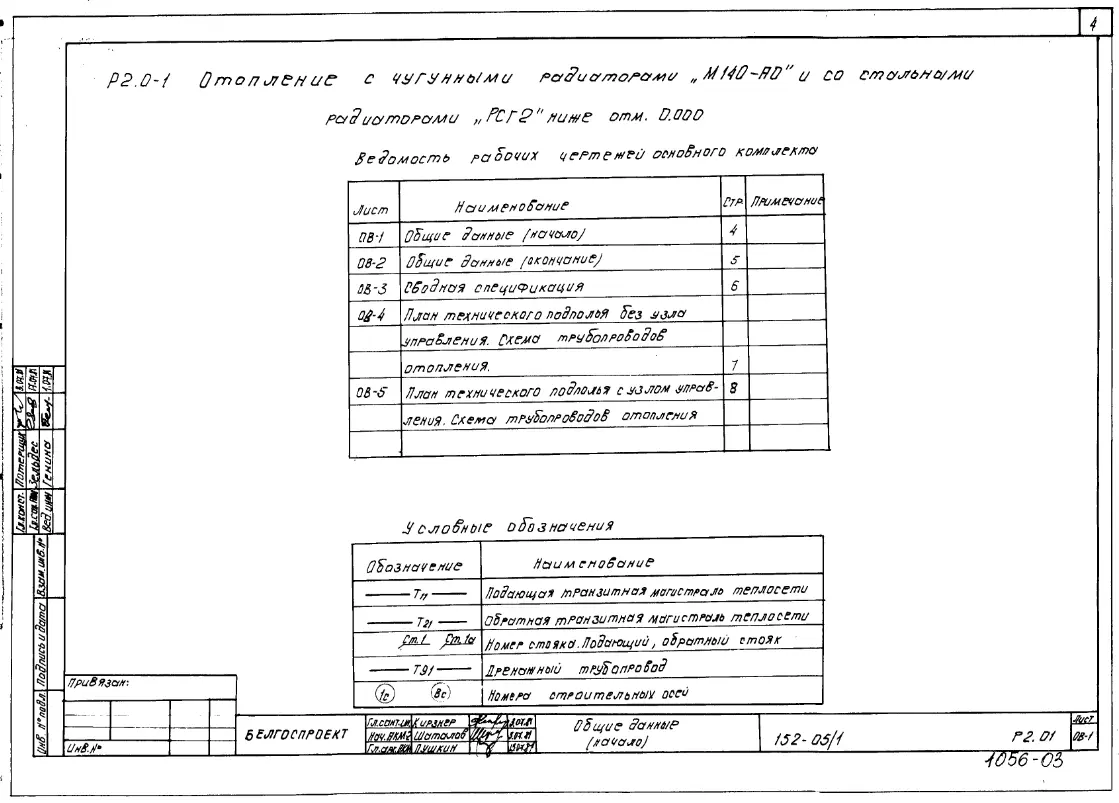 4
Р2.0-1 Отопление с чугунными радиаторами „М140-АО" и со стальными
радиаторами „РСГ2" ниже отм. 0.000
Ведомость рабочих чертежей основного комплекта
Лист Наименование Стр. Примечание
ОВ-1 Общие данные (начало) 4
ОВ-2 Общие данные (окончание) 5
ОВ-3 Сводная спецификация 6
ОВ-4 План технического подполья без узла
управления. Схема трубопроводов
отопления. 7
ОВ-5 План технического подполья с узлом управ- 8
ления. Схема трубопроводов отопления
Условные обозначения
Обозначение Наименование
Т11 Подающая транзитная магистраль теплосети
Т21 Обратная транзитная магистраль теплосети
Ст.1 Ст.1а Номер стояка. Подающий, обратный стояк
Т91 Дренажный трубопровод
1с 8с Номера строительных осей
Гл.конст. Потерщук
Зельдес
Вед.инж Генина
Взам.инв.№
Подпись и дата
Инв.№подл.
Привязан:
Инв.№
БЕЛГОСПРОЕКТ
Гл.сант. Кирзнер
Нач.АКМ2 Шаталов
Пушкин
Общие данные
(начало)
152-05/1
Р2.01
Лист
ОВ-1
1056-03